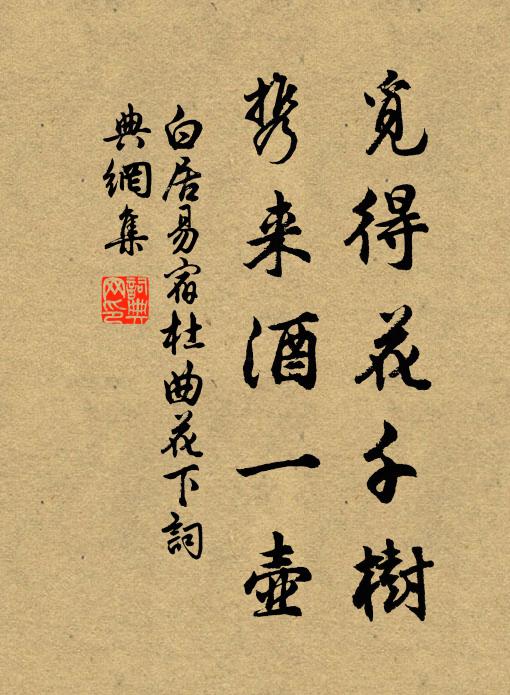 覓得花千樹
携来酒一壺
白居易宿杜曲花下詞
典網集
詞典
网印